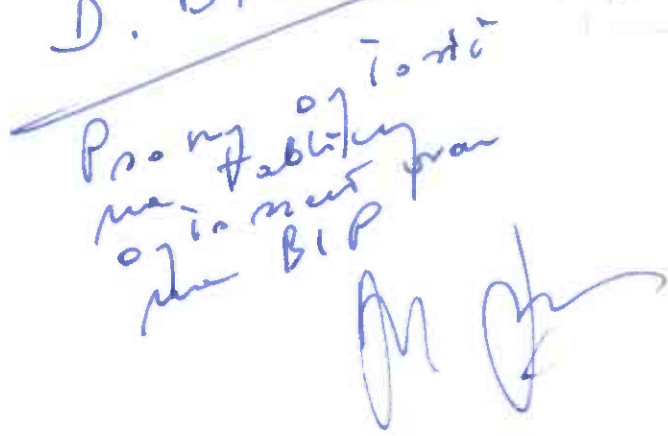 D. B
Proszę ogłosić
na tablicy
ogłoszeń oraz
na BIP